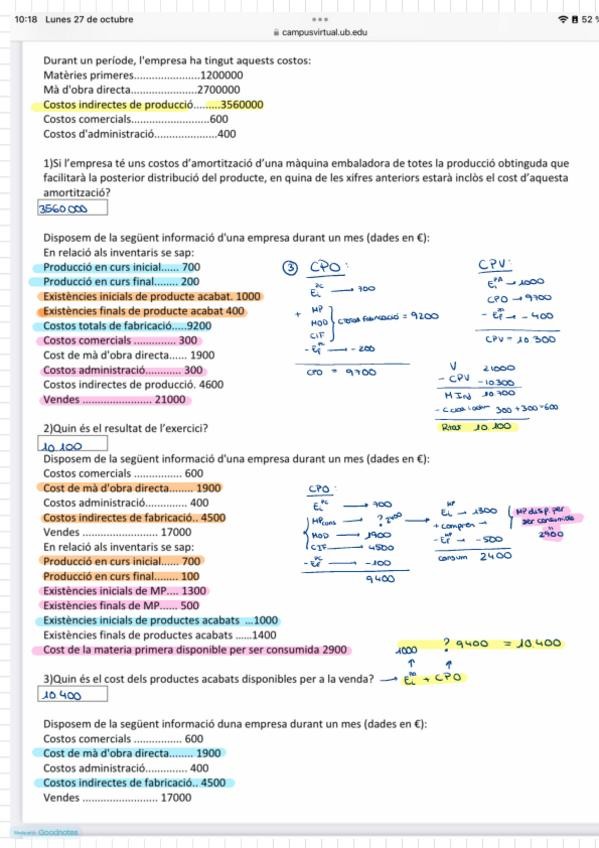 10:18 Lunes 27 de octubre
52 %
campusvirtual.ub.edu
Durant un període, l'empresa ha tingut aquests costos:
Matèries primeres......................1200000
Mà d'obra directa......................2700000
Costos indirectes de producció.........3560000
Costos comercials..........................600
Costos d'administració.....................400
1)Si l'empresa té uns costos d'amortització d'una màquina embaladora de totes la producció obtinguda que
facilitarà la posterior distribució del producte, en quina de les xifres anteriors estarà inclòs el cost d'aquesta
amortització?
3560 000
Disposem de la següent informació d'una empresa durant un mes (dades en €):
En relació als inventaris se sap:
Producció en curs inicial...... 700
Producció en curs final........ 200
Existències inicials de producte acabat. 1000
Existències finals de producte acabat 400
Costos totals de fabricació.....9200
Costos comercials .............. 300
Cost de mà d'obra directa...... 1900
Costos administració............ 300
Costos indirectes de producció. 4600
Vendes ....................... 21000
3 CPO:
Ei PC → 700
+ MP
MOD
CIF
Costos Fabricació = 9200
- Ef PC → - 200
CPO = 9700
CPV:
Ei PA → 1000
CPO → 9700
- Ef PA → - 400
CPV = 10.300
V 21000
- CPV -10300
10.700
300 + 300 = 600
10.100
2)Quin és el resultat de l'exercici?
10.100
Disposem de la següent informació d'una empresa durant un mes (dades en €):
Costos comercials ................ 600
Cost de mà d'obra directa........ 1900
Costos administració.............. 400
Costos indirectes de fabricació.. 4500
Vendes ......................... 17000
En relació als inventaris se sap:
Producció en curs inicial...... 700
Producció en curs final........ 100
Existències inicials de MP.... 1300
Existències finals de MP...... 500
Existències inicials de productes acabats ...1000
Existències finals de productes acabats ......1400
Cost de la materia primera disponible per ser consumida 2900
CPO:
Ei PC → 700
MPcons → ? 2400
MOD → 1900
CIF → 4500
- Ef PC → -100
9400
Ei MP → 1300
+ compren →
- Ef MP → -500
consum 2400
MP disp. per
ser consumida
2900
1000 ? 9400 = 10.400
3)Quin és el cost dels productes acabats disponibles per a la venda? → Ei PA + CPO
10 400
Disposem de la següent informació duna empresa durant un mes (dades en €):
Costos comercials ................ 600
Cost de mà d'obra directa........ 1900
Costos administració.............. 400
Costos indirectes de fabricació.. 4500
Vendes ......................... 17000
Goodnotes